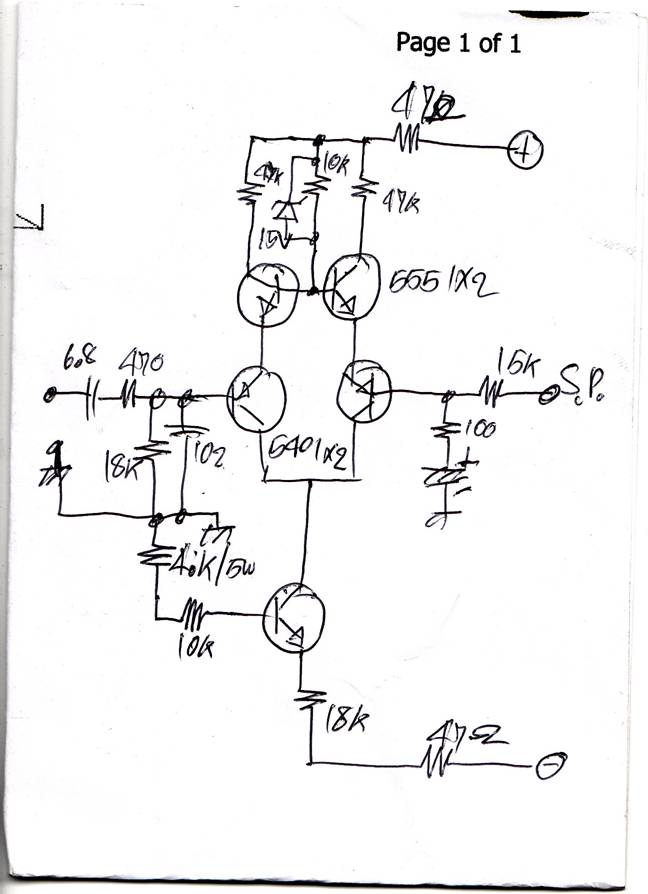 Page 1 of 1
47Ω
+
47k
10k
47k
15V
5551x2
6.8
470
15k
S.P.
18k
102
5401x2
100
+
10k
18k
47Ω
-